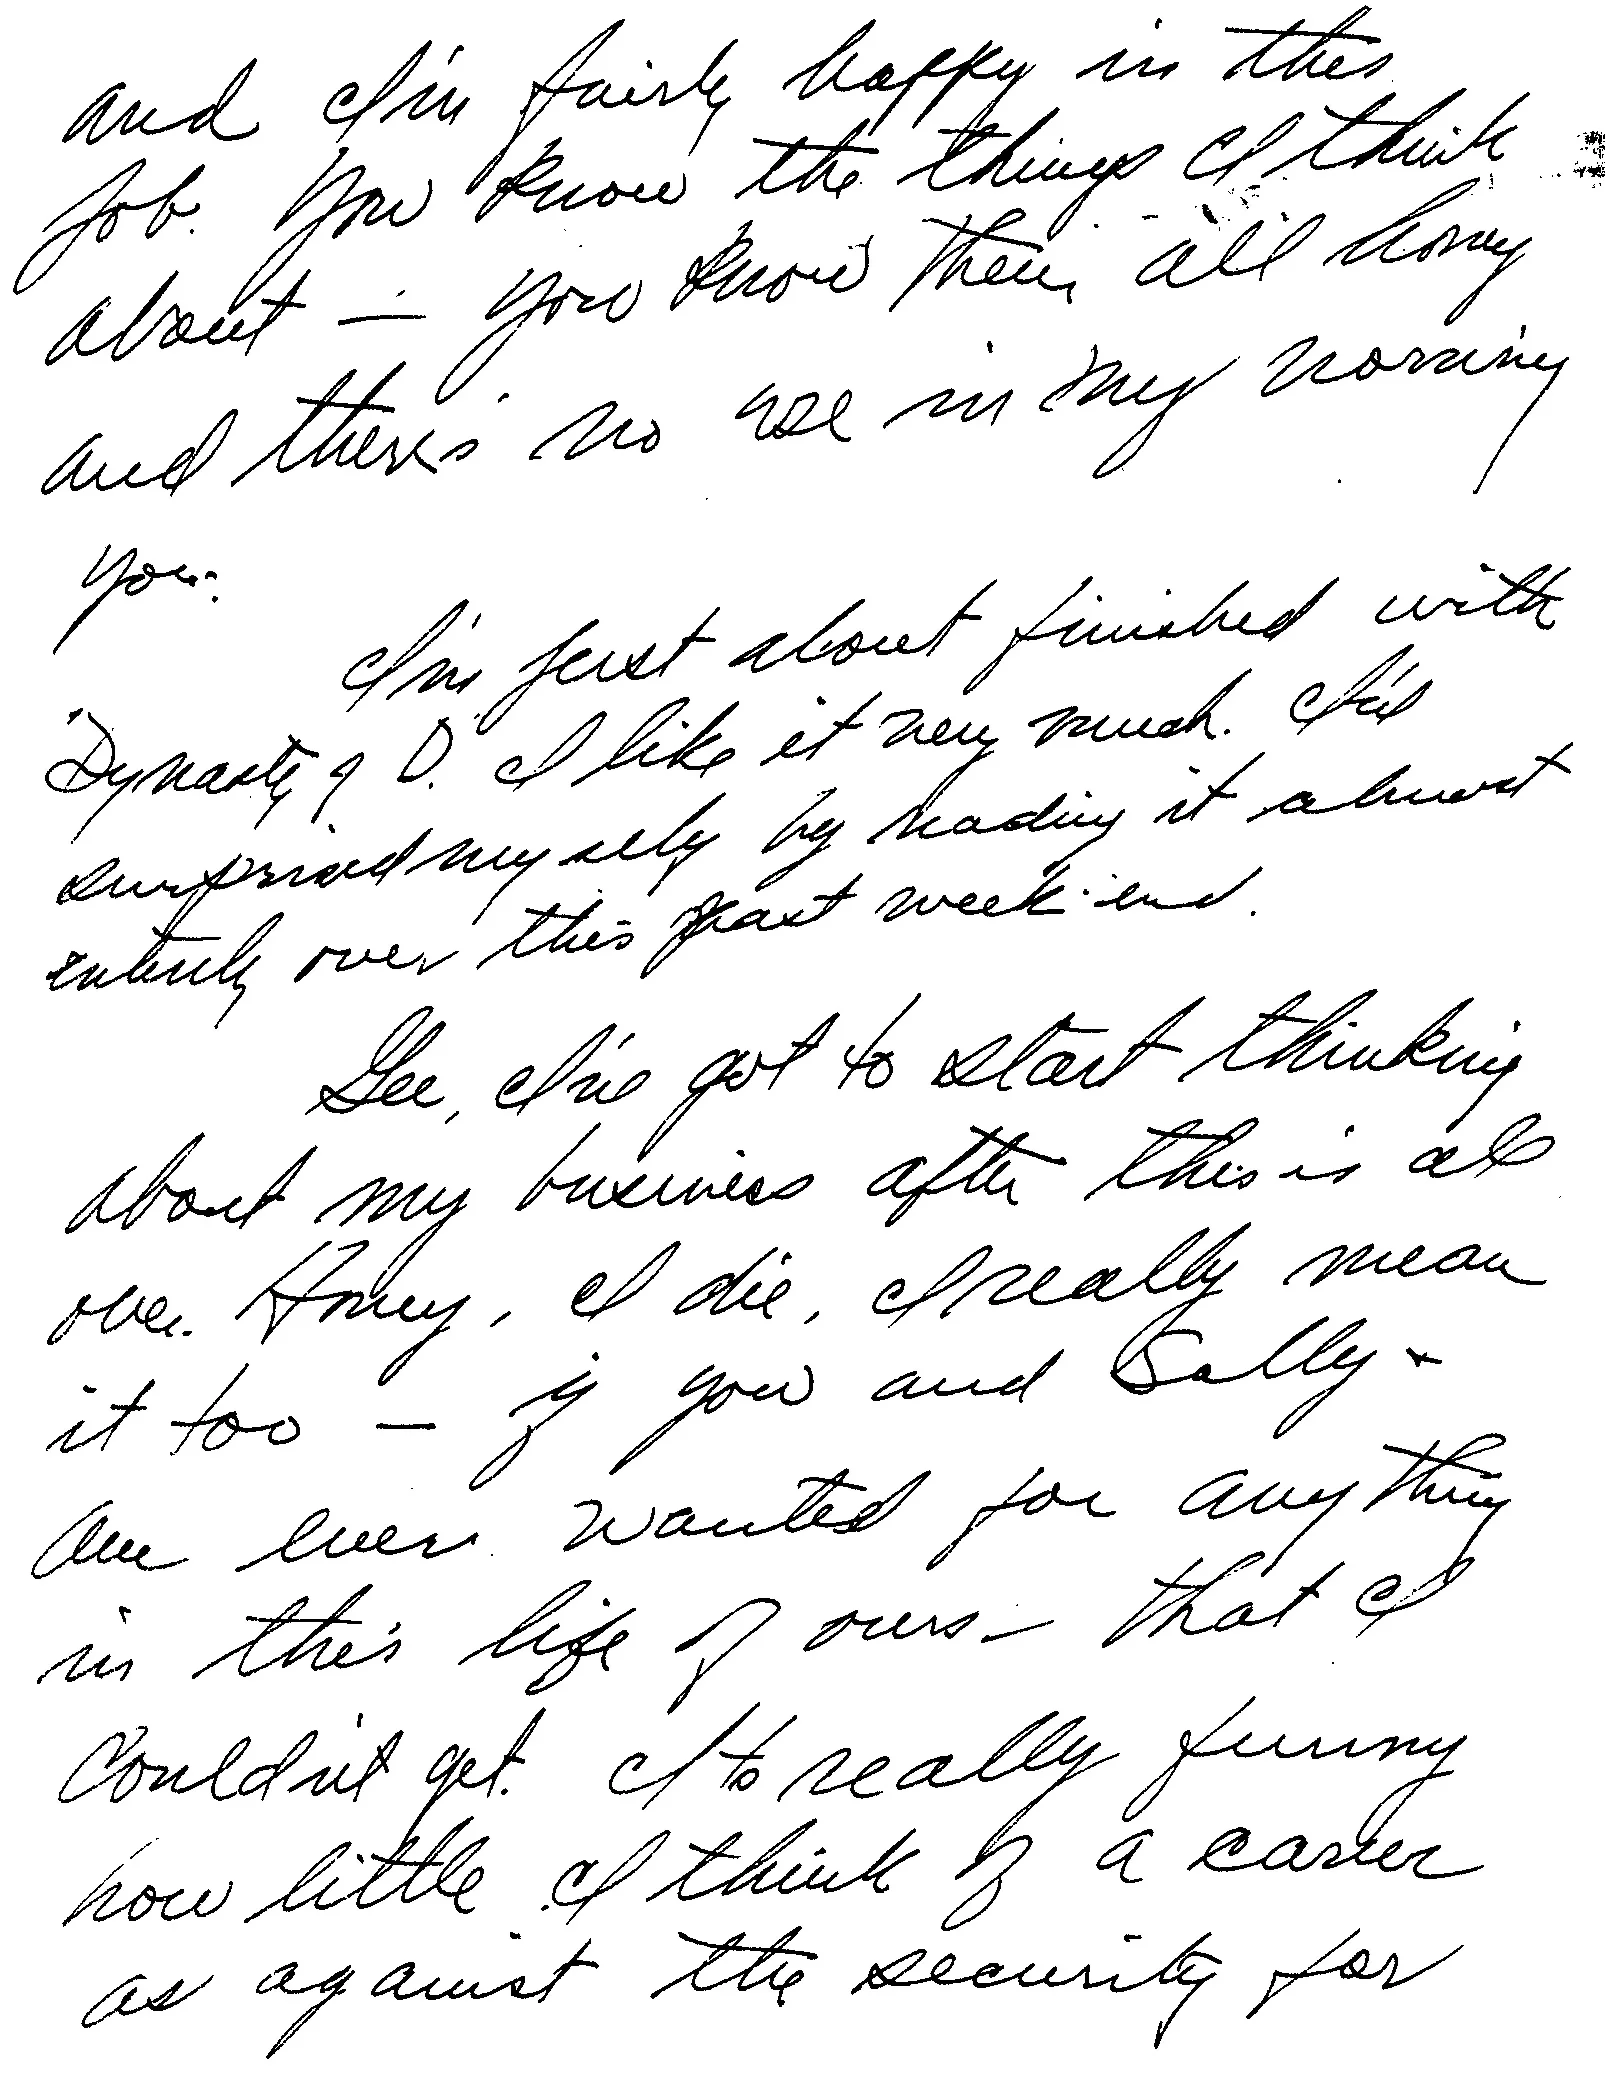 and I'm fairly happy in this
job. You know the things I think
about — you know them all honey
and there's no use in my worrying
you.
I'm just about finished with
"Dynasty of D." I like it very much. I've
surprised myself by reading it almost
entirely over this past week-end.
Gee, I've got to start thinking
about my business after this is all
over. Honey, I die, I really mean
it too — if you and Sally -
Ann ever wanted for anything
in this life of ours — that I
couldn't get. Its really funny
how little I think of a career
as against the security for